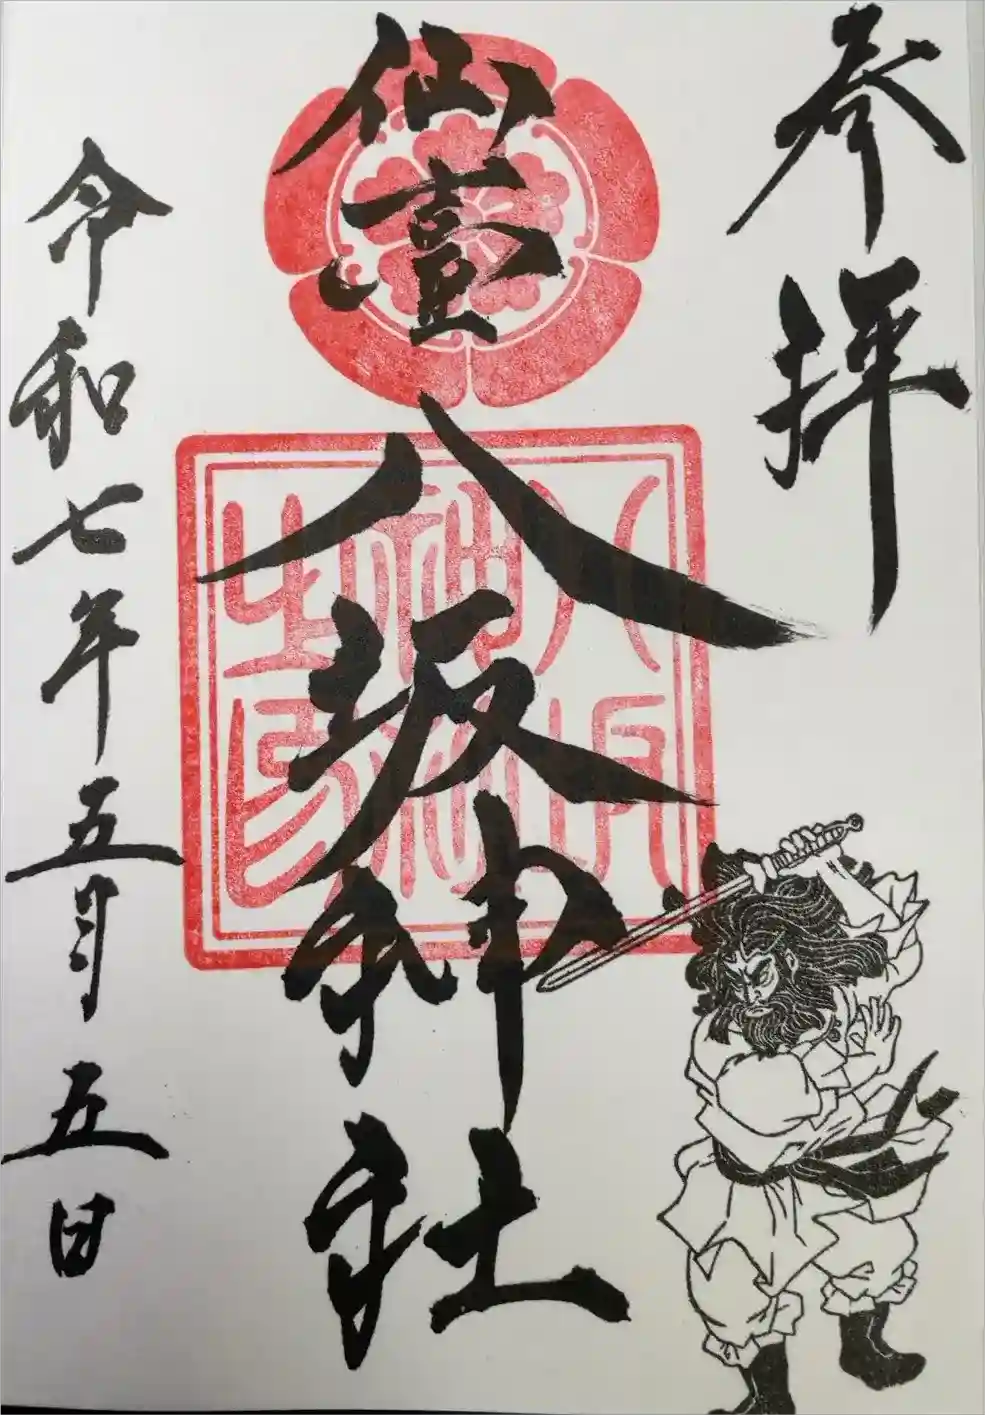 参拝
仙臺
八坂神社
八坂
神社
之印
令和七年五月五日